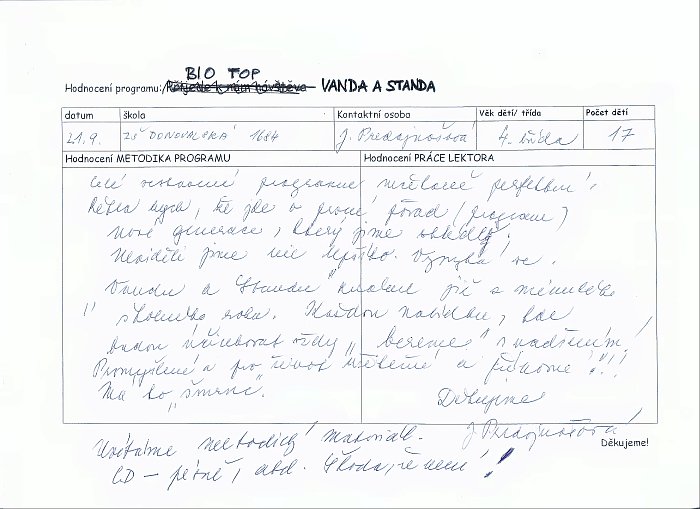 BIO TOP
Hodnocení programu: VANDA A STANDA
datum škola Kontaktní osoba Věk dětí/ třída Počet dětí
21.9. ZŠ DONOVALSKÁ 1684 J. 4. třída 17
Hodnocení METODIKA PROGRAMU Hodnocení PRÁCE LEKTORA
Celé programu perfektní,
řekla bych, že jde o první pořad (program)
nové generace, který jsme shlédly,
Neviděli jsme nic lepšího.
Vandu a Standu známe již z minulého
školního roku. Každou nabídku, kde
budou účinkovat vždy „bereme" s nadšením!
Promyšlené a pro život a !!!
Má to „šmrnc".
Děkujeme
Uvítáme metodický materiál. J
Děkujeme!
CD – písně, atd. Škoda, že není!